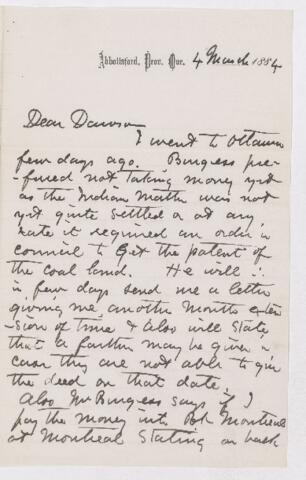 Abbotsford, Prov. Que. 4 March 1884
Dear Dawson
I went to Ottawa
few days ago. Burgess pre-
ferred not taking money yet
as the Indian Matter was not
yet quite settled or at any
rate it required an order in
council to get the patent of
the coal land. He will
in few days send me a letter
giving me another months exten
sion of time & also will state
that a further may be given in
case they are not able to give
the deed on that date.
Also Mr Burgess says if I
pay the money into Bk Montreal
at Montreal stating on back